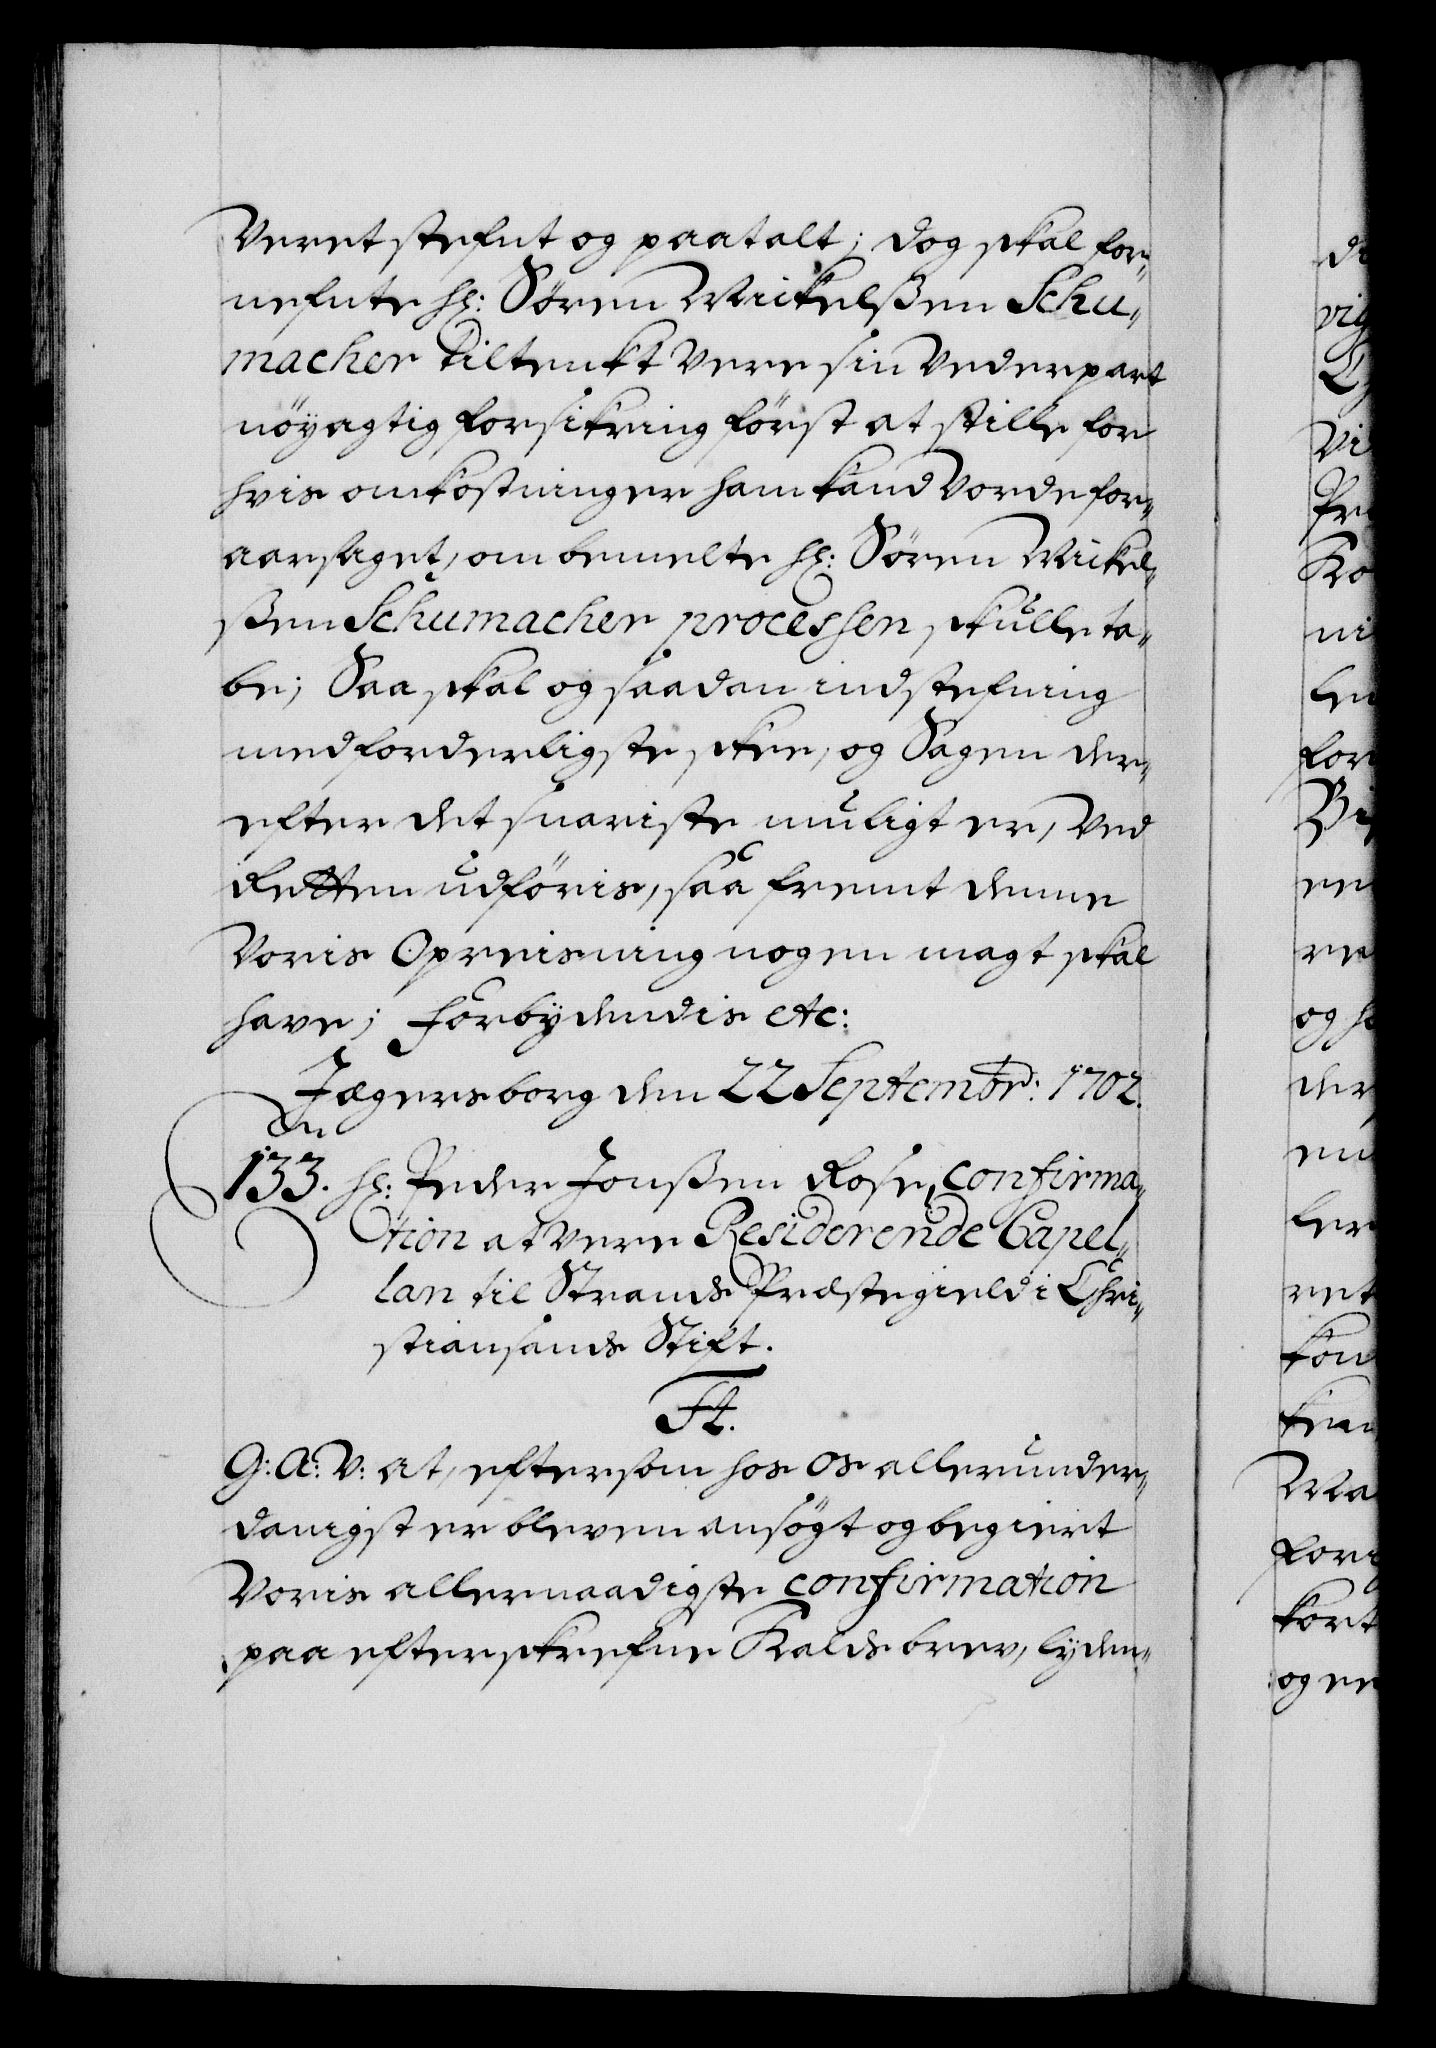 Veret stefnt og paatalt; dog skal for¬
nefnte hr: Søren Mickelsen Schu¬
macher tiltenkt Vere sin Vederpart
nöyagtig forsikring först at stille for
hvis omkostninger ham kand Vorde for¬
aarsaget, om bemelte hr: Søren Mikel¬
ßen Schumacher processen skulle ta¬
be; Saa skal og saadan indstefning
medforderligste skee, og Sagen der¬
efter det snariste muligt er, Ved
Retten udföris, saa fremt denne
Voris Opreisning nogen magt skal
have; Forbydendis etc:
Jægersborg den 22 Septembr: 1702.
133. hr: Peder Jonßen Rose, confirma¬
tion at Vere Residerende Capel¬
lan til Strands Præstegield i Chri¬
stiansands Stift.
F4.
G: A: V: at, eftersom hos os allerunder¬
danigst er bleven ansögt og begiert
Voris allernaadigste confirmation
paa efterskrefne Kalds brev, lyden¬
og
for
ret